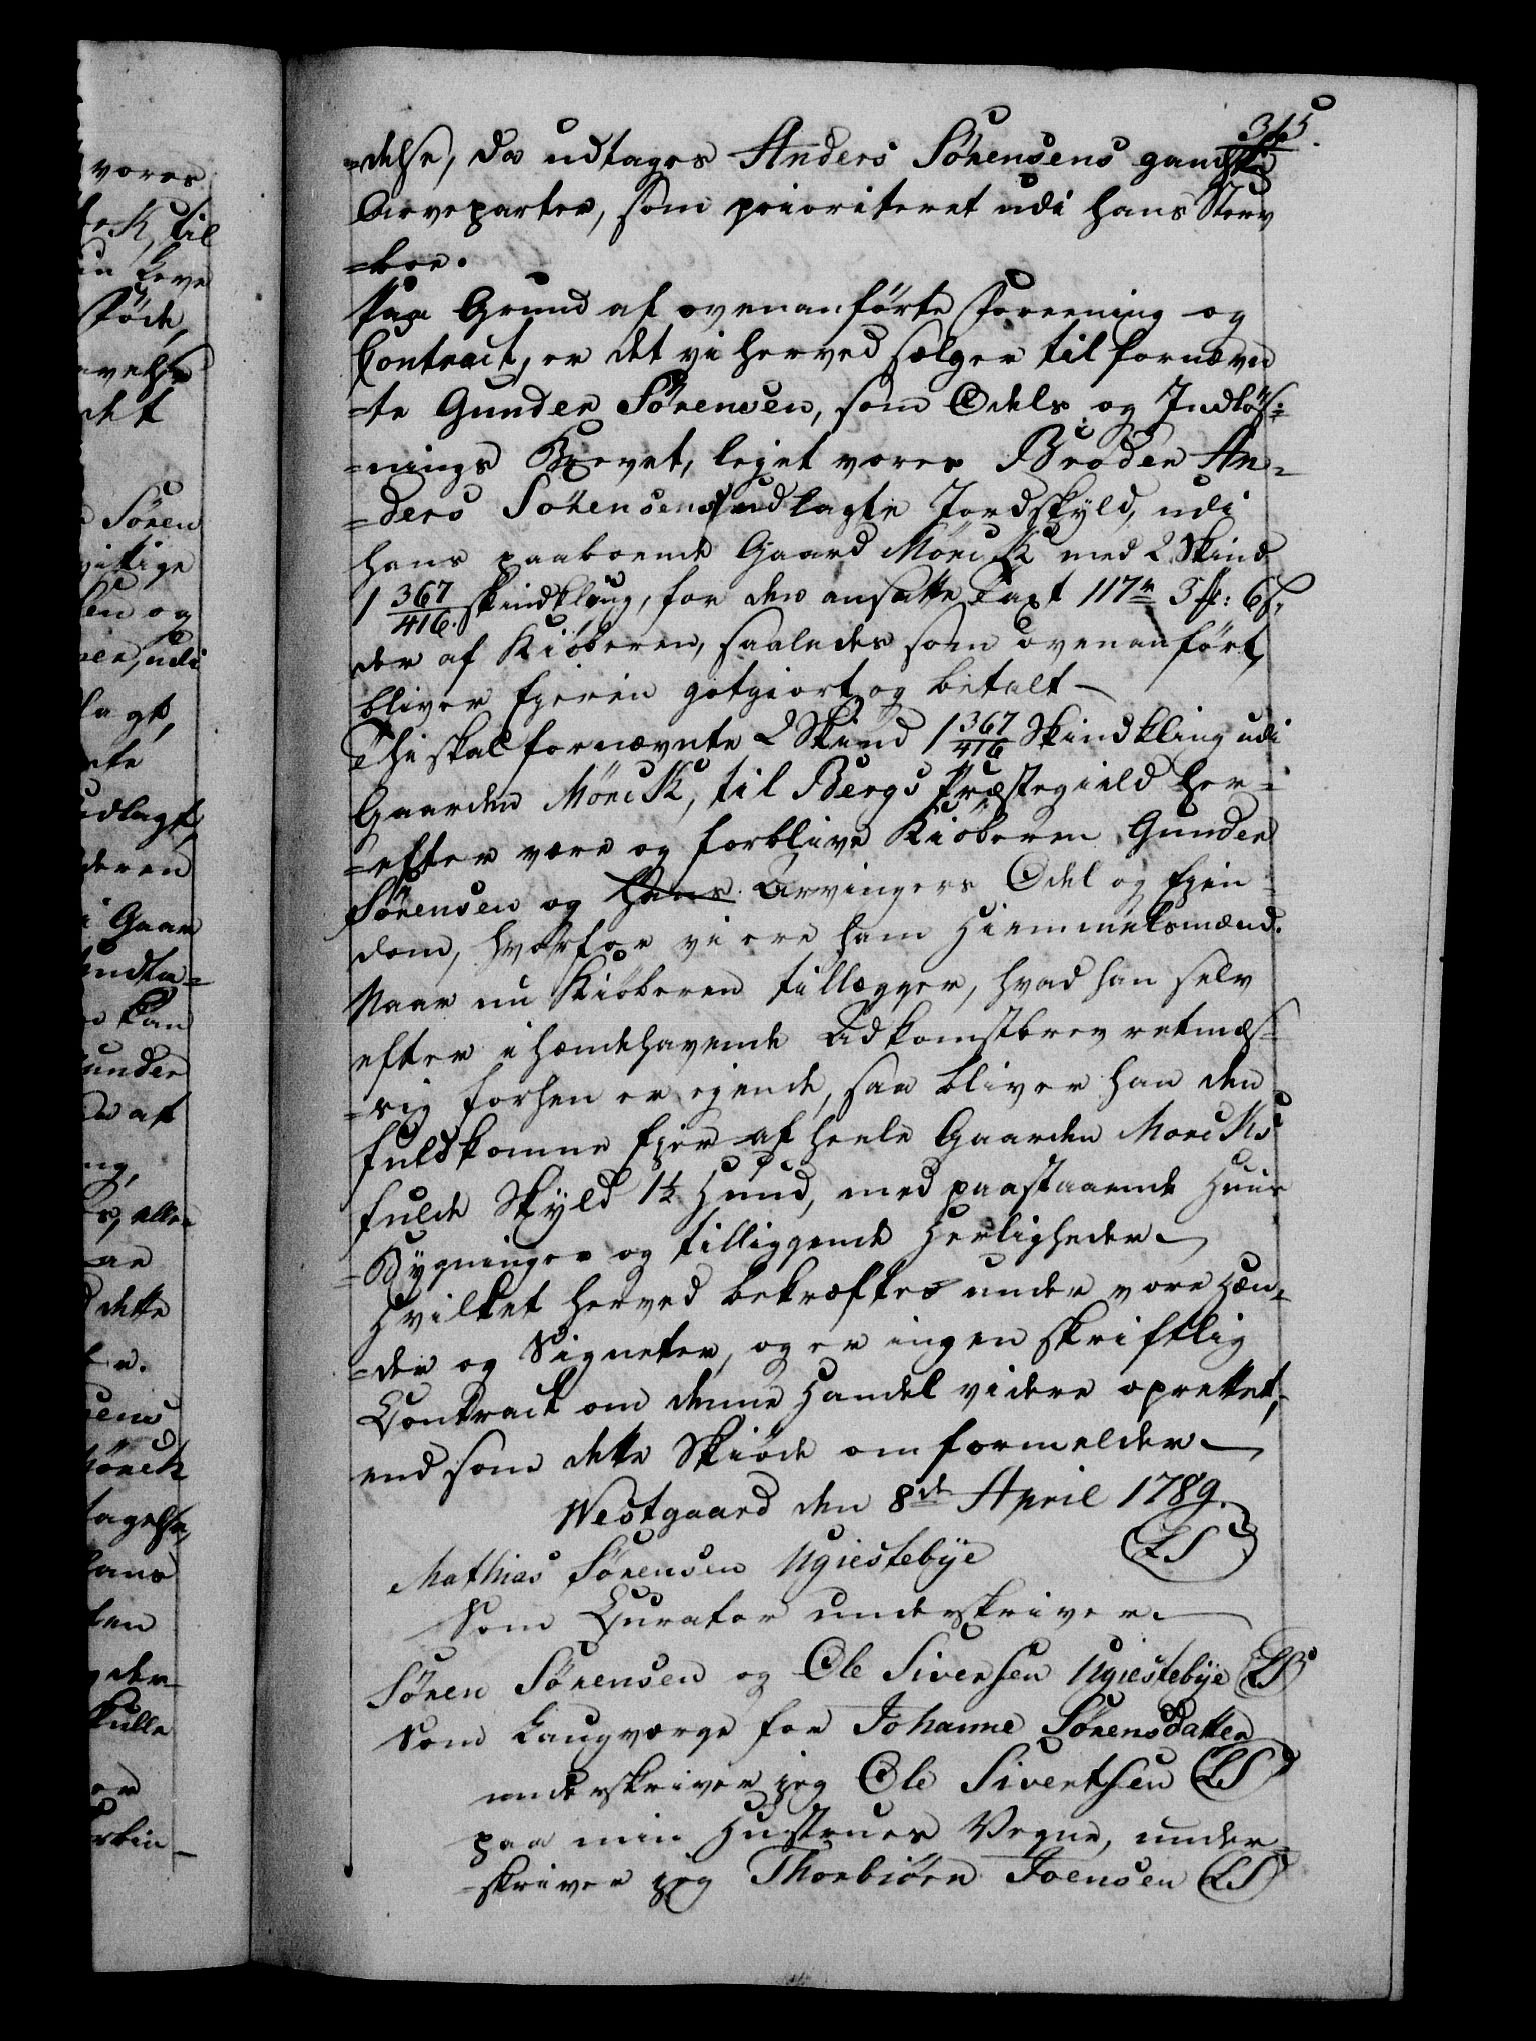 345.
=delse, da udtages Anders Sörensens gandske
Arveparter, som prioriteret udi hans Sterv
=boe.
Paa Grund af ovenanförte Foreening og
Contract, er det vi herved sælger til fornævn
=te Gunder Sörensen, som Odels og Indlös=
=nings Berettiget, vores Broder An=
=ders Sörensens udlagte Jordskyld, udi
hans paaboende Gaard Mönck med 2 Skind
1 367/416 skindkling, for den ansatte Taxt 117 r 3 ß: 6 ß,
der af Kiöberen, saaledes som ovenanfört,
bliver Eyerin gotgiort og betalt —
Thi skal fornævnte 2 Skind 1 367/416 Skindkling udi
Gaarden Mönck, til Bergs Præstegield her=
=efter være og forblive Kiöberen Gunder
Sörensen og hans Arvingers Odel og Eyen=
dom, hvorfor vi ere ham Hiemmelsmænd.
Naar nu Kiöberen tillægger, hvad han selv
efter ihændehavende Adkomstbrev retmæs=
=sig forhen er eyende, saa bliver han den
fuldkomne Eyer af heele Gaarden Moncks
fulde Skyld 1½ Huud, med paastaaende Huus
=Bygninger og tilliggende Herligheder —
Hvilket herved bekræftes under vore Hæn=
=der og Signeter, og er ingen skriftlig
Contract om denne Handel videre oprettet,
end som dette Skiöde omformelder —
Westgaard den 8de April 1789.
Mathias Sörensen Ugiestebye (LS)
Som Curator underskriver —
Sören Sörensen og Ole Siversen Ugiestebye (LS)
Som Laugværge for Johanne Sörensdatter
underskriver jeg Ole Sivertsen (LS)
paa min Hustrues Vegne, under=
=skriver jeg Thorbiörn Joensen (LS)